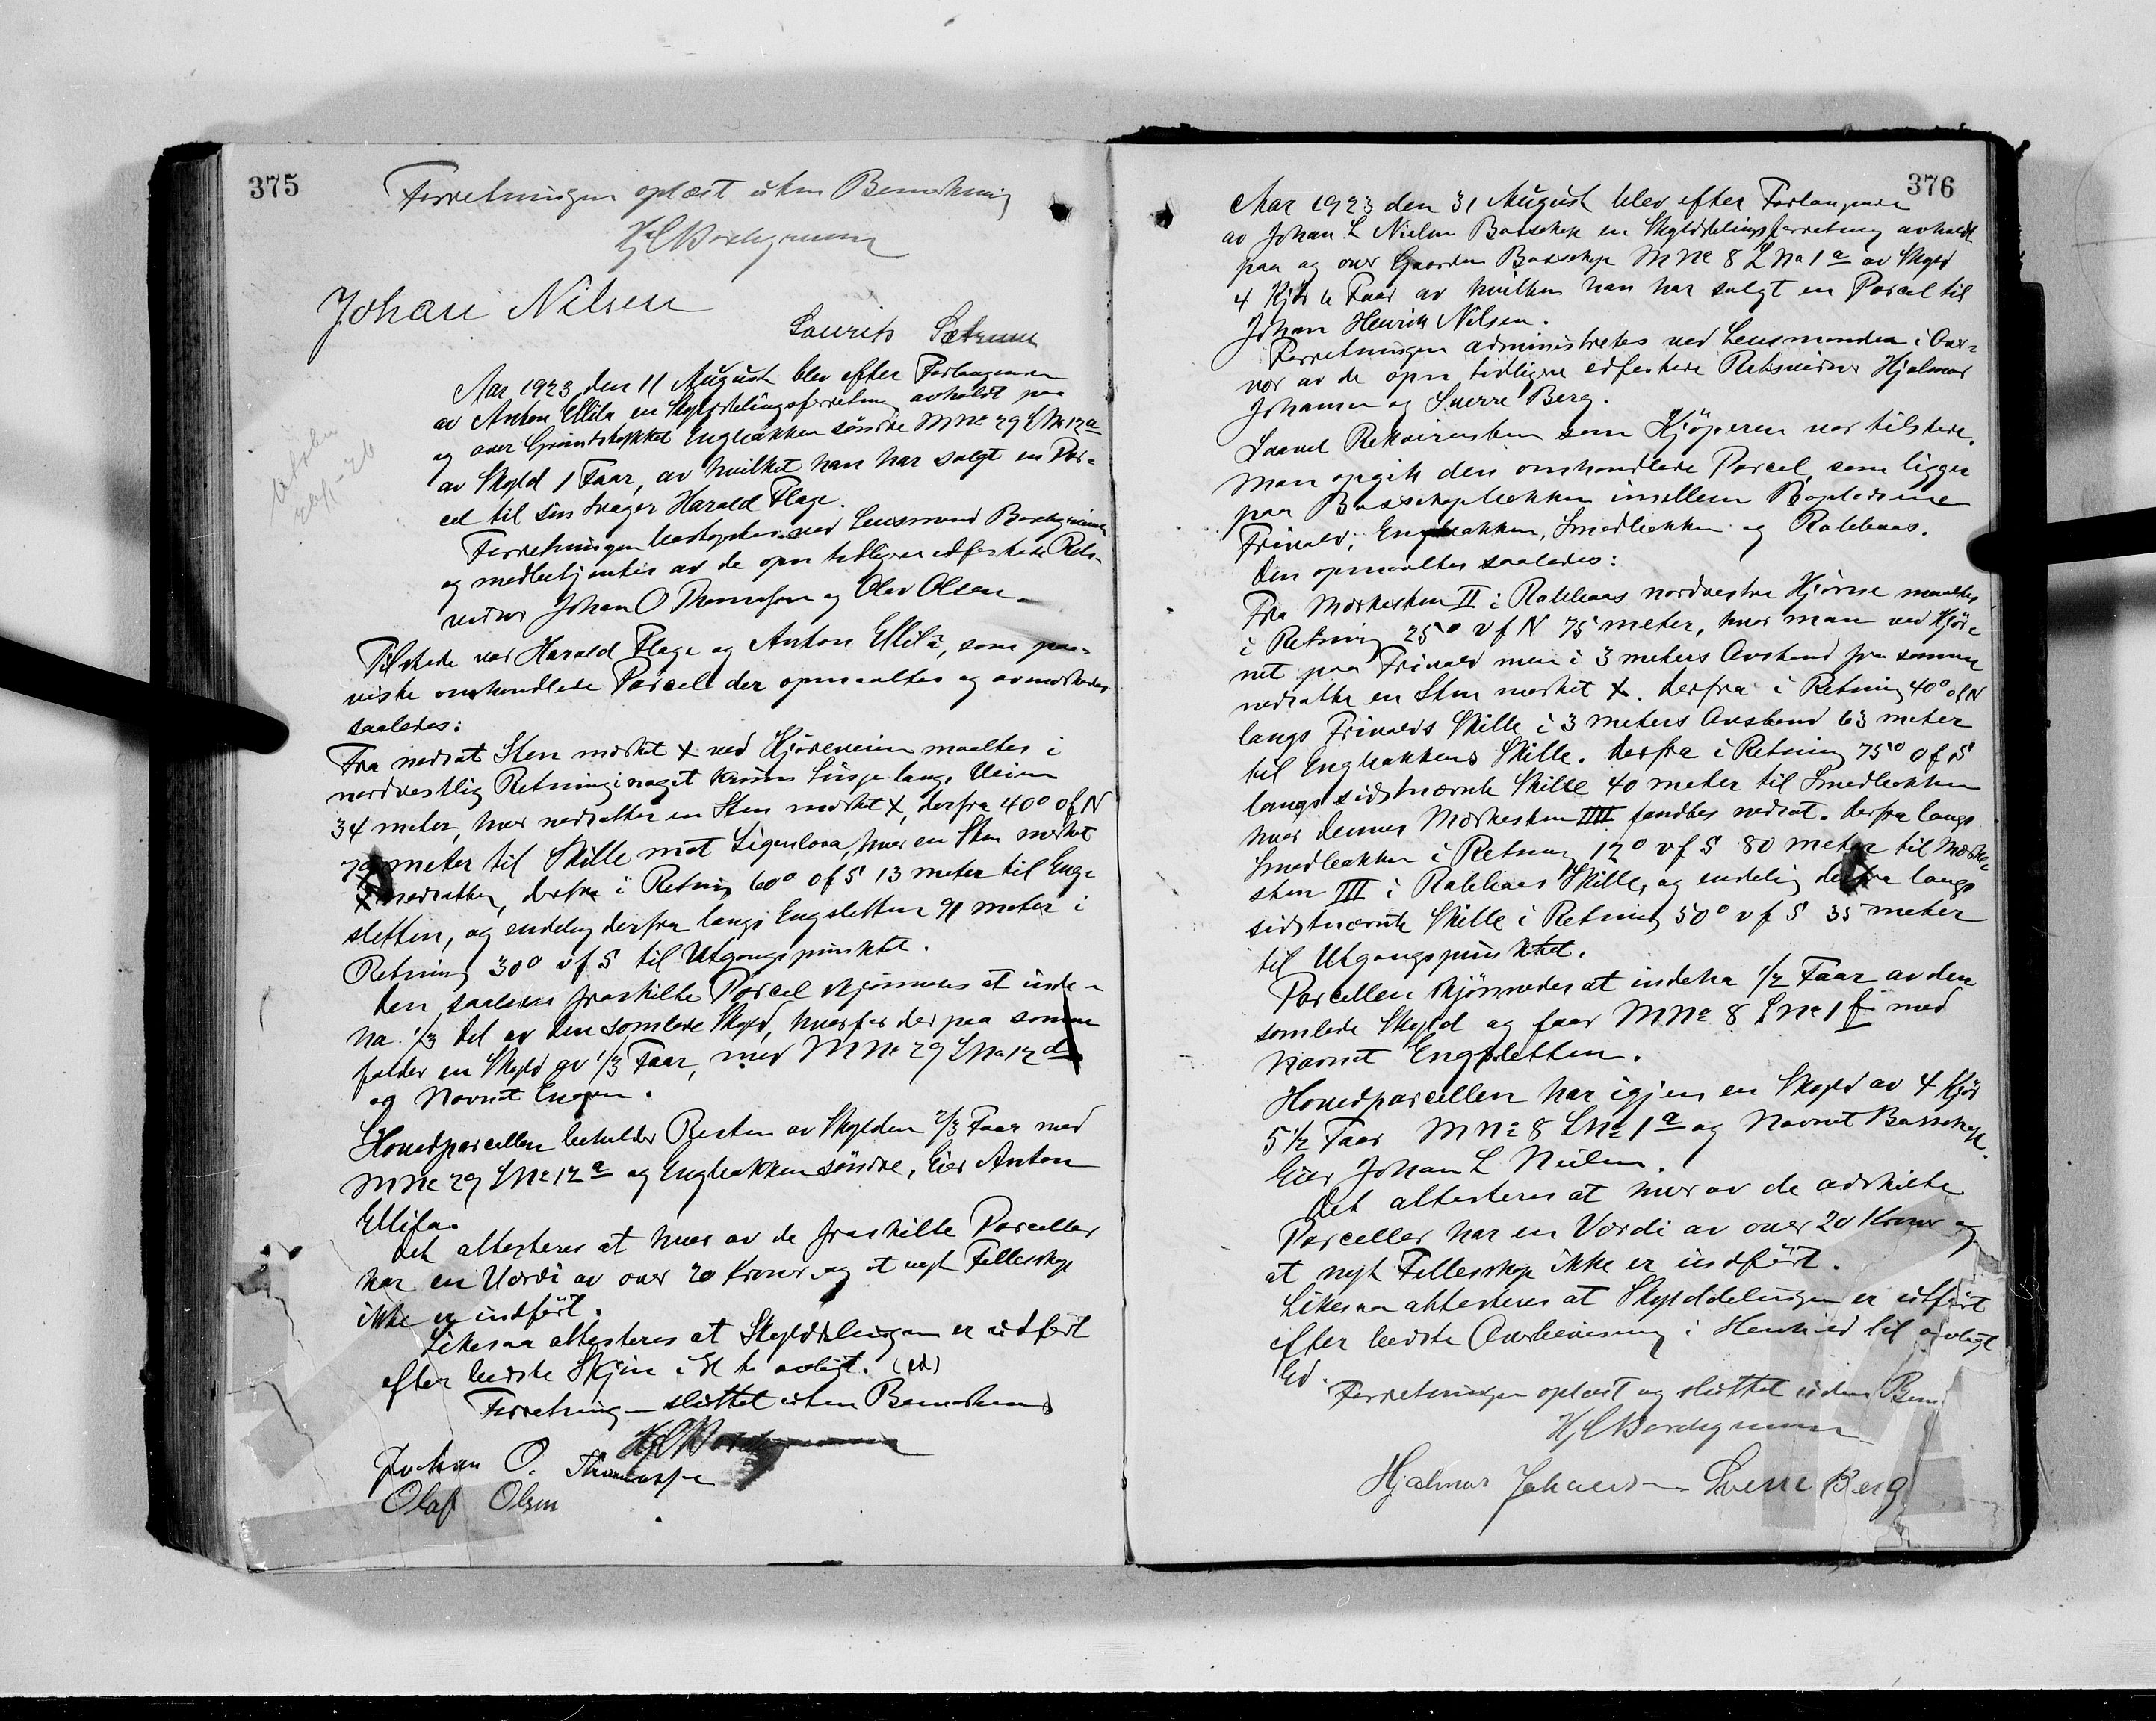 375
Forretningen oplæst uten Bemerkning
Johan Nilsen
Laurits
Aar 1923 den 11 August blev efter Forlangende
av Anton Ellila en Skylddelingsforretning avholdt paa
og over Grundstykket Engbakken søndre M No 29 L No 12 a
av Skyld 1 Faar, av hvilket han har solgt en Par-
cel til sin Svager Harald Flage.
Forretningen ved Lensmand
og medbetjentes av de opn tidligere edfestede Rets-
vidner Johan O Thomassen og Olav Olsen.
Tilstede var Harald Flage og Anton Ellilä, som paa-
viste omhandlede Parcel der opmaaltes og avmerkedes
saaledes:
Fra nedsat Sten merket X ved Kjøreveien maaltes i
nordvestlig Retning i noget krum Linje langs Veien
34 meter, hvor nedsattes en Sten merket X, derfra 40° o f N
meter til Skille mot hvor en Sten merket
X nedsattes, derfra i Retning 60° o f S 13 meter til Eng-
sletten, og endelig derfra langs Engsletten 91 meter i
Retning 30° v f S til Utgangspunktet.
Den saaledes fraskilte Parcel skjønnedes at inde-
ha 1/3 Del av den samlede Skyld, hvorfor der paa samme
falder en Skyld av 1/3 Faar, med M No 29 L No 12 d
og Navnet Engen.
Hovedparcellen beholder Resten av Skylden 2/3 Faar med
M No 29 L No 12 a og Engbakken søndre, Eier Anton
Ellila.
Det attesteres at hver av de fraskilte Parceller
har en Værdi av over 20 Kroner og at nyt Fellesskap
ikke er indført.
Likesaa attesteres at Skylddelingen er utført
efter bedste Skjøn i H t avlagt. (ed)
Forretning sluttet uten Bemerkning
Johan O. Thomassen
Olaf Olsen
376
Aar 1923 den 31 August blev efter Forlangende
av Johan L Nielsen Bossekop en Skylddelingsforretning avholdt
paa og over Gaarden Bossekop M No 8 L No 1 a av Skyld
4 Kjør 6 Faar av hvilken han har solgt en Parcel til
Johan Henrik Nilsen.
Forretningen administretes ved Lensmanden i Over-
vær av de opn tidligere edfestede Retsvidner Hjalmar
Johansen og Sverre Berg.
Saavel Rekvirenten som Kjøperen var tilstede.
Man opgik den omhandlede Parcel, som ligger
paa Bossekopbakken imellem Bopladsene
Frivold, Engbakken, Smedbakken og Rabbaas.
Den opmaaltes saaledes:
Fra Merkesten II i Rabbaas nordvestre Hjørne maaltes
i Retning 25° v f N 75 meter, hvor man ved Hjør-
net paa Frivold men i 3 meters Avstand fra samme
nedsatte en Sten merket X. Derfra i Retning 40° o f N
langs Frivolds Skille i 3 meters Avstand 63 meter
til Engbakkens Skille. Derfra i Retning 75° o f S
langs sidstnævnte Skille 40 meter til Smedbakken
hvor dennes Merkesten IIII fandtes nedsat. Derfra langs
Smedbakken i Retning 12° v f S 80 meter til Merke-
sten III i Rabbaas Skille, og endelig derfra langs
sidstnævnte Skille i Retning 50° v f S 35 meter
til Utgangspunktet.
Parcellen skjønnedes at indeha 1/2 Faar av den
samlede Skyld og faar M No 8 L No 1 f med
Navnet Engsletten.
Hovedparcellen har igjen en Skyld av 4 Kjør
5 1/2 Faar M No 8 L No 1 a og Navnet Bossekop.
Eier Johan L Nielsen.
Det attesteres at hver av de adskilte
Parceller har en Værdi av over 20 Kroner og
at nyt Fellesskap ikke er indført.
Likesaa attesteres at Skylddelingen er utført
efter bedste Overbevisning i Henhold til avlagt
Ed.
Forretningen oplæst og sluttet uden Bem
Hjalmar Johansen Sverre Berg